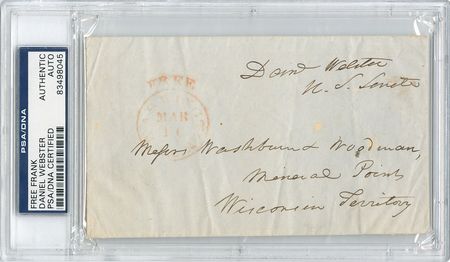 PSA/DNA
FREE FRANK
DANIEL WEBSTER
PSA/DNA CERTIFIED
AUTHENTIC
AUTO
83498045
FREE
MAR
Danl Webster
U. S. Senate
Messrs Washburn & Woodman,
Mineral Point
Wisconsin Territory